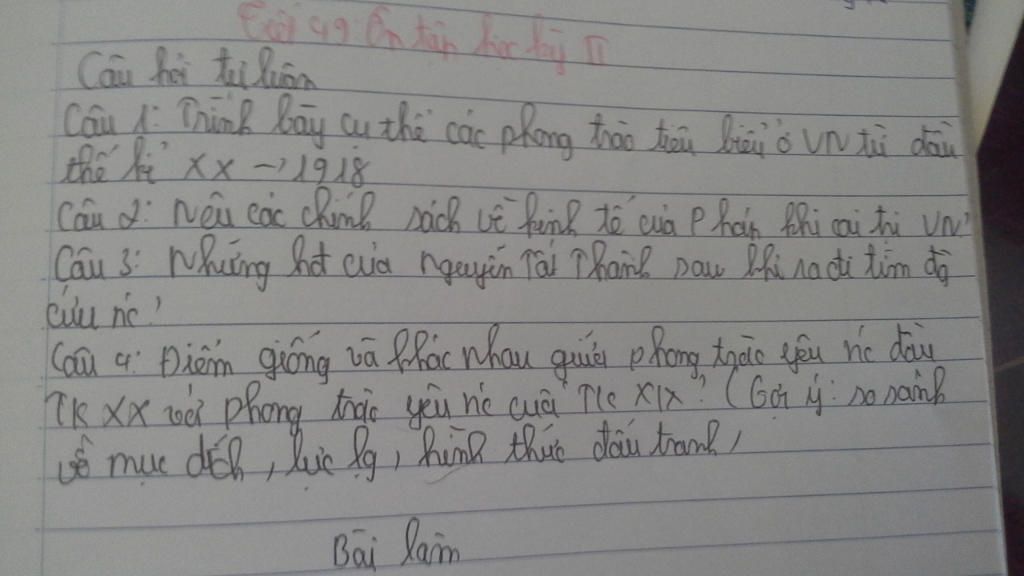 Tiết 49 Ôn tập học kỳ II
Câu hỏi tự luận
Câu 1: Trình bày cụ thể các phong trào tiêu biểu ở VN từ đầu
thế kỉ XX → 1918
Câu 2: Nêu các chính sách về kinh tế của Pháp khi cai trị VN?
Câu 3: Những hđ của Nguyễn Tất Thành sau khi ra đi tìm đg
cứu nc?
Câu 4: Điểm giống và khác nhau giữa phong trào yêu nc đầu
TK XX với phong trào yêu nc cuối TK XIX? (Gợi ý: so sánh
về mục đích, lực lg, hình thức đấu tranh)
Bài làm